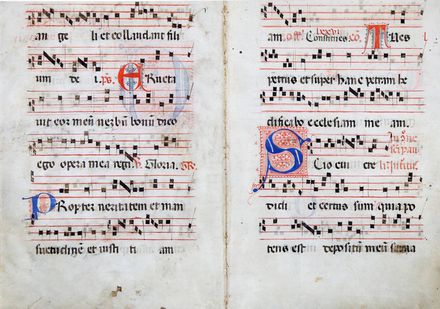 an ge li et collaudant fili
um de i. ps. Eructa
uit cor meum uerbum bonum dico
ego opera mea regi. Gloria.
Propter ueritatem et man
suetudinem et iusti tiam
am. Constitues. Tu es
lxxxvi
petrus et super hanc petram he
dificabo ecclesiam meam.
Scio cui cre
didi et certus sum quia po
tens est depositum meum serua